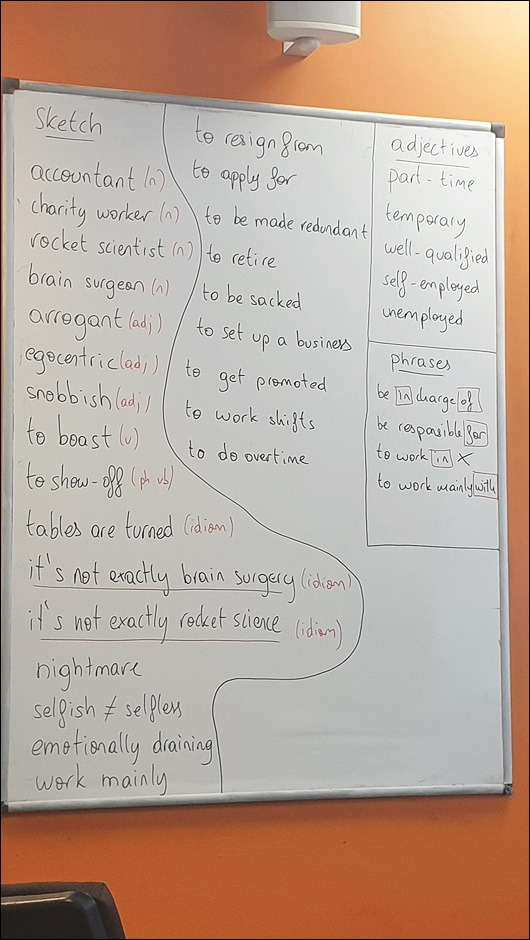 Sketch
accountant (n)
charity worker (n)
rocket scientist (n)
brain surgeon (n)
arrogant (adj)
egocentric (adj)
snobbish (adj)
to boast (v)
to show-off (ph vb)
tables are turned (idiom)
it's not exactly brain surgery (idiom)
it's not exactly rocket science (idiom)
nightmare
selfish ≠ selfless
emotionally draining
work mainly
to resign from
to apply for
to be made redundant
to retire
to be sacked
to set up a business
to get promoted
to work shifts
to do overtime
adjectives
part-time
temporary
well-qualified
self-employed
unemployed
phrases
be in charge of
be responsible for
to work in X
to work mainly with